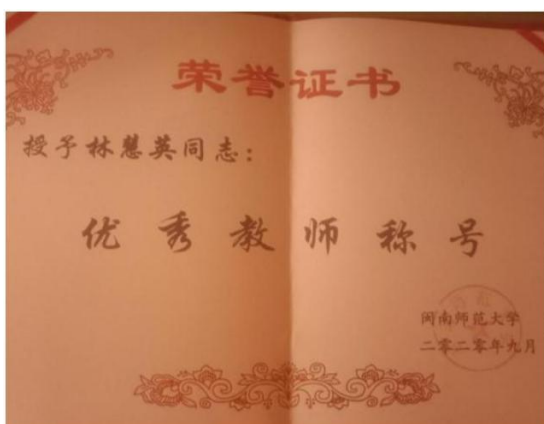 荣誉证书
授予林慧英同志：
优秀教师称号
闽南师范大学
二零二零年九月